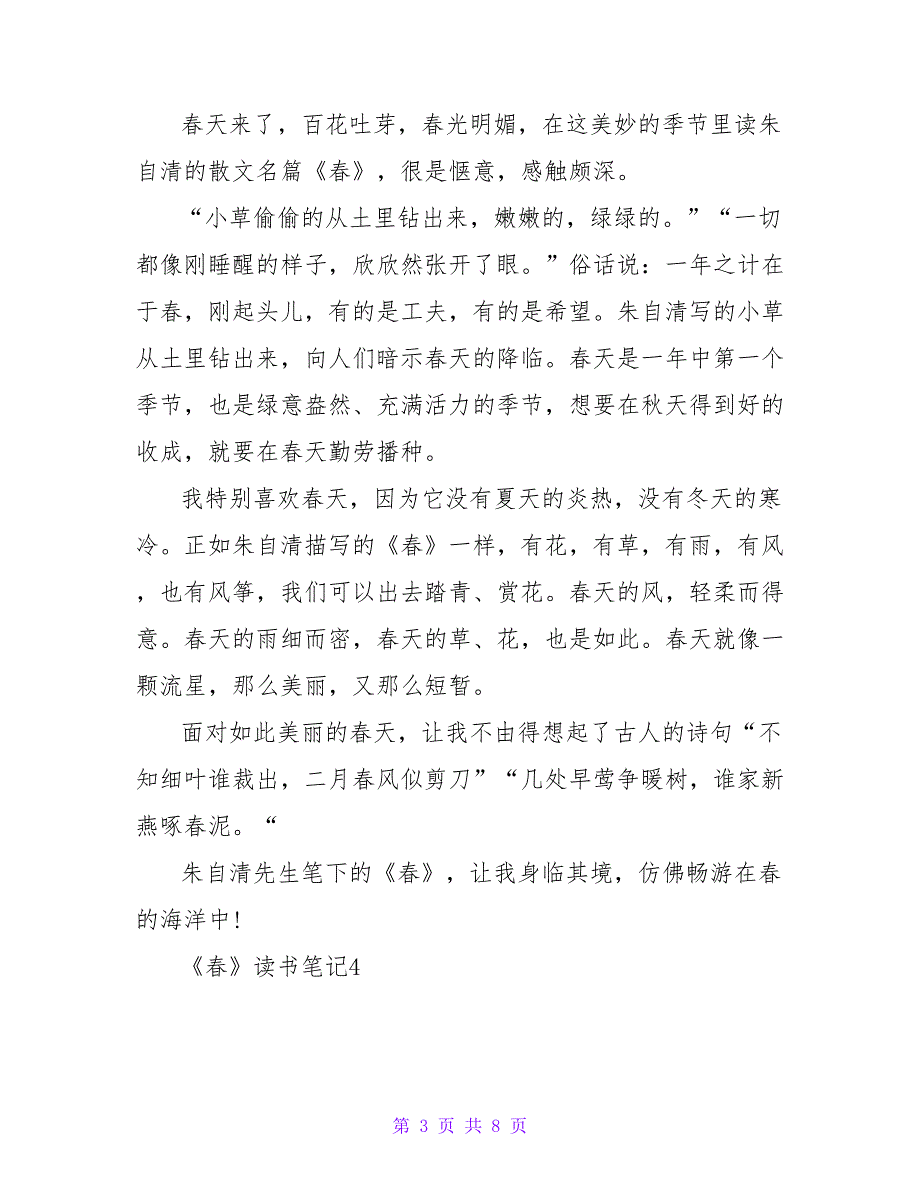 春天来了，百花吐芽，春光明媚，在这美妙的季节里读朱
自清的散文名篇《春》，很是惬意，感触颇深。
“小草偷偷的从土里钻出来，嫩嫩的，绿绿的。”“一切
都像刚睡醒的样子，欣欣然张开了眼。”俗话说：一年之计在
于春，刚起头儿，有的是工夫，有的是希望。朱自清写的小草
从土里钻出来，向人们暗示春天的降临。春天是一年中第一个
季节，也是绿意盎然、充满活力的季节，想要在秋天得到好的
收成，就要在春天勤劳播种。
我特别喜欢春天，因为它没有夏天的炎热，没有冬天的寒
冷。正如朱自清描写的《春》一样，有花，有草，有雨，有风
，也有风筝，我们可以出去踏青、赏花。春天的风，轻柔而得
意。春天的雨细而密，春天的草、花，也是如此。春天就像一
颗流星，那么美丽，又那么短暂。
面对如此美丽的春天，让我不由得想起了古人的诗句“不
知细叶谁裁出，二月春风似剪刀”“几处早莺争暖树，谁家新
燕啄春泥。“
朱自清先生笔下的《春》，让我身临其境，仿佛畅游在春
的海洋中!
《春》读书笔记4
第 3 页 共 8 页